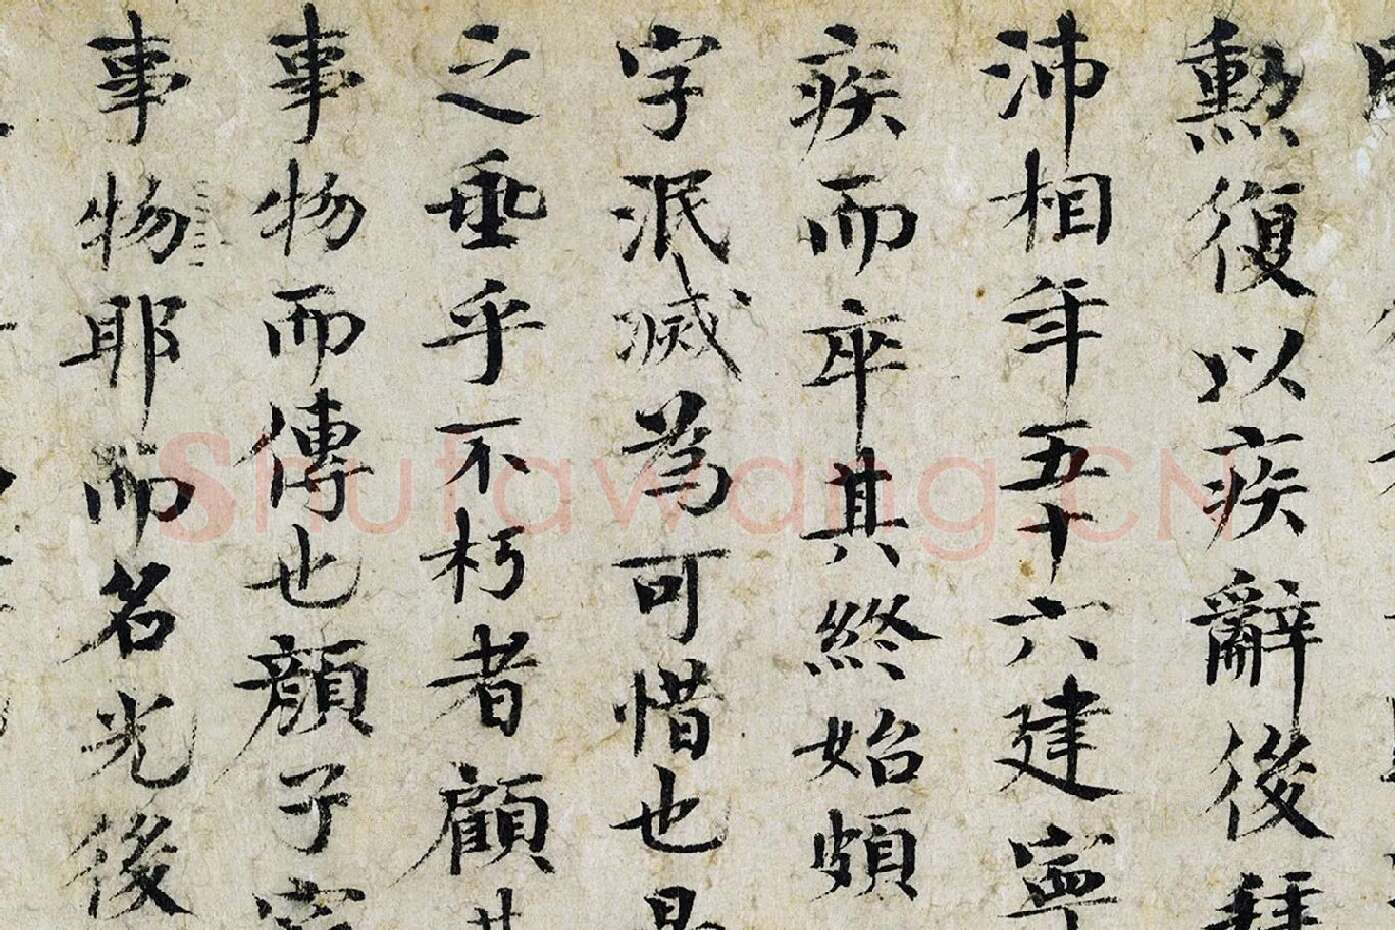 勲復以疾辭後拜
沛相年五十六建寧
疾而卒其終始頗
字泯滅為可惜也是
之垂乎不朽者顧其
事物而傳也顏子窮
事物耶而名光後
Shufawang.CN